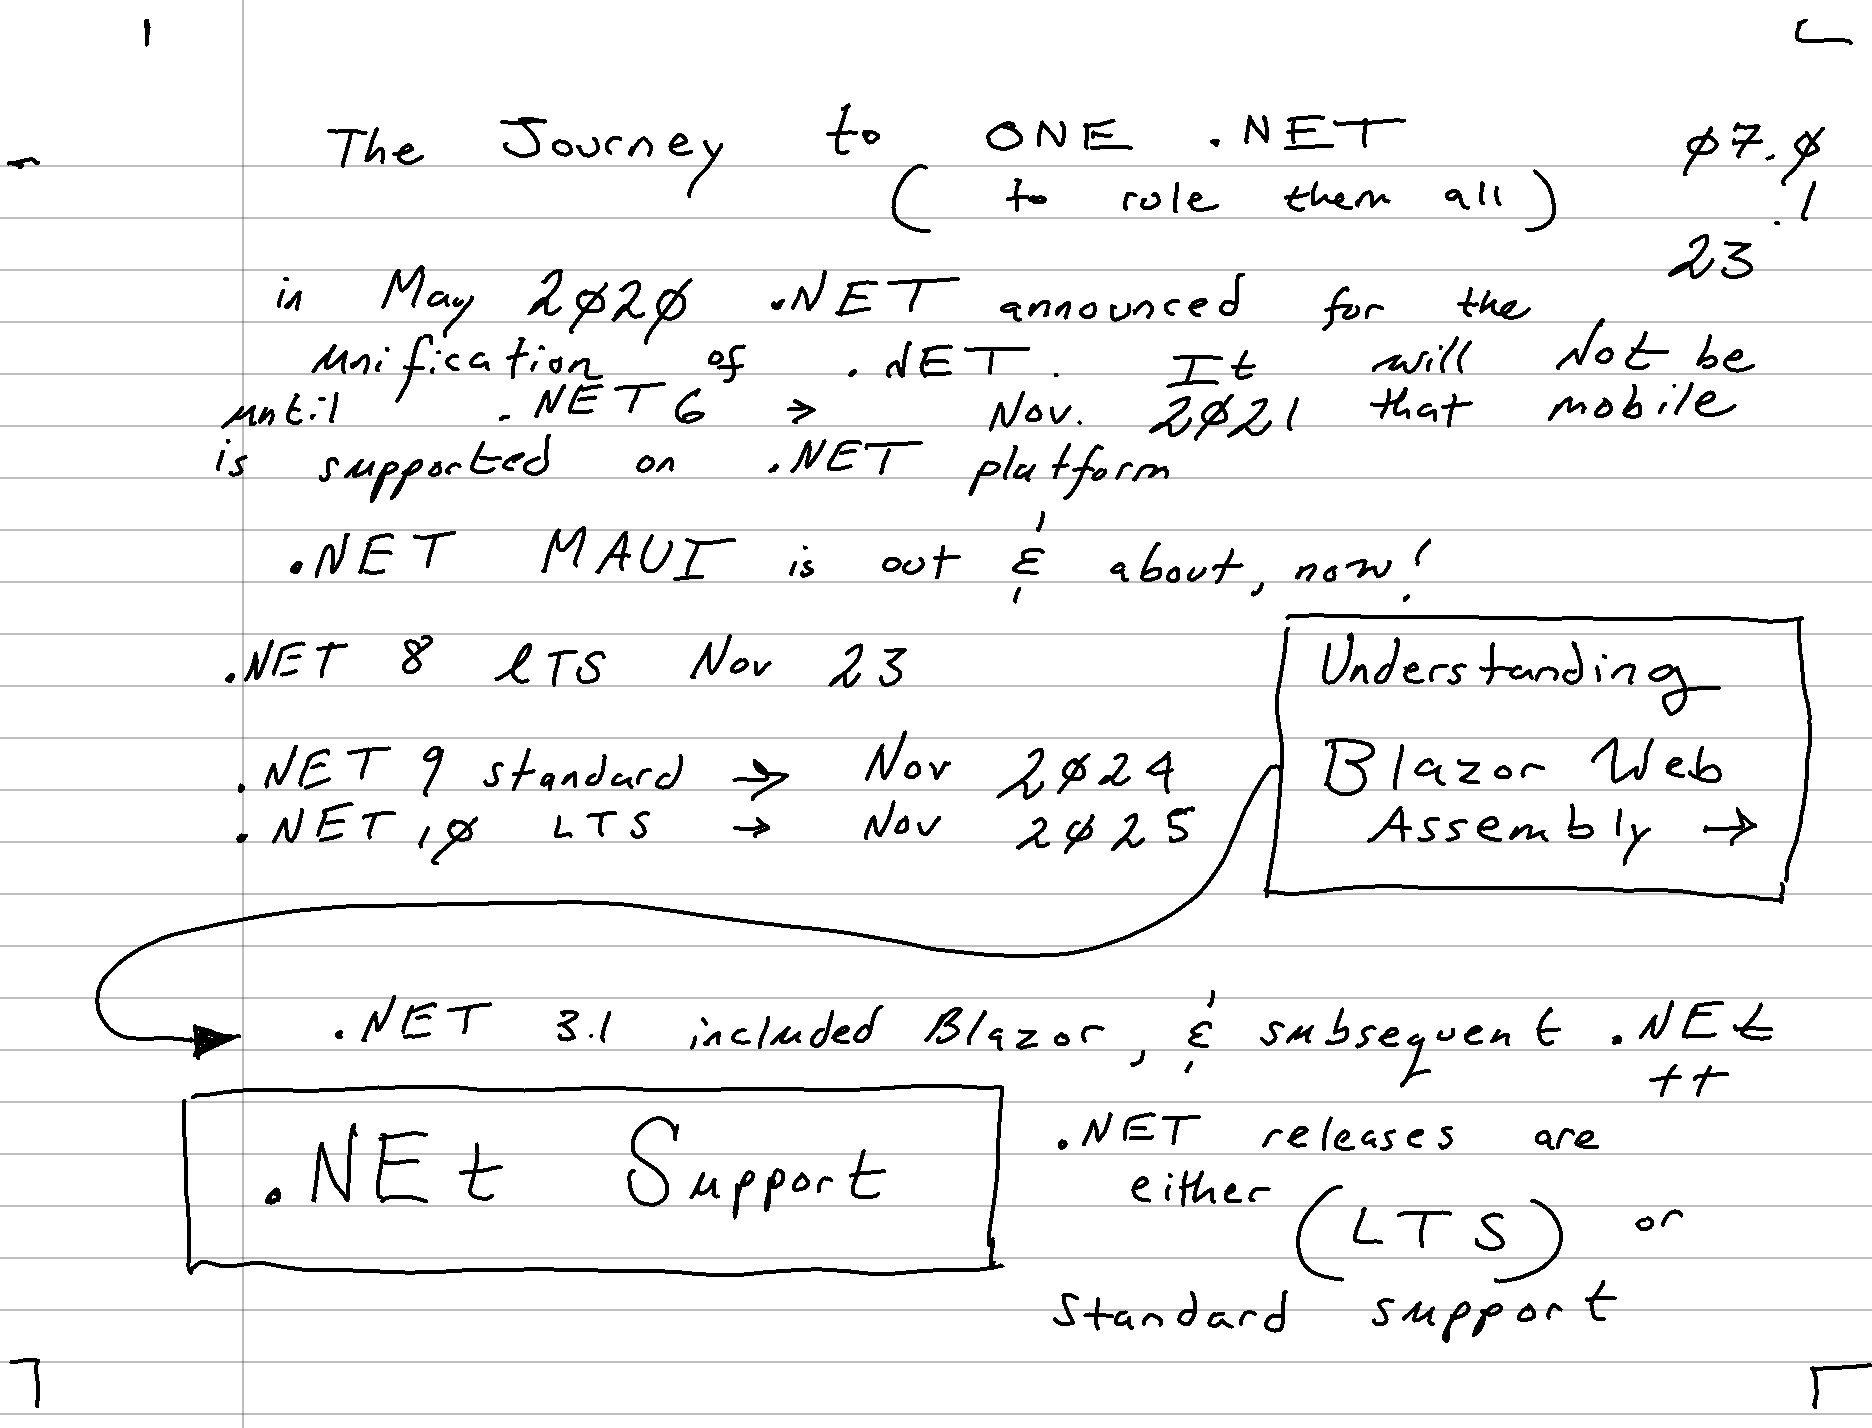 The Journey to ONE .NET
(to role them all)
ø7.ø
.1
23
in May 2ø2ø .NET announced for the
unification of .NET. It will Not be
until .NET 6 → Nov. 2ø21 that mobile
is supported on .NET platform
.NET MAUI is out & about, now!
.NET 8 LTS Nov 23
.NET 9 standard → Nov 2ø24
.NET 1ø LTS → Nov 2ø25
Understanding
Blazor Web
Assembly →
.NET 3.1 included Blazor, & subsequent .NEt
++
.NEt Support
.NET releases are
either (LTS) or
standard support